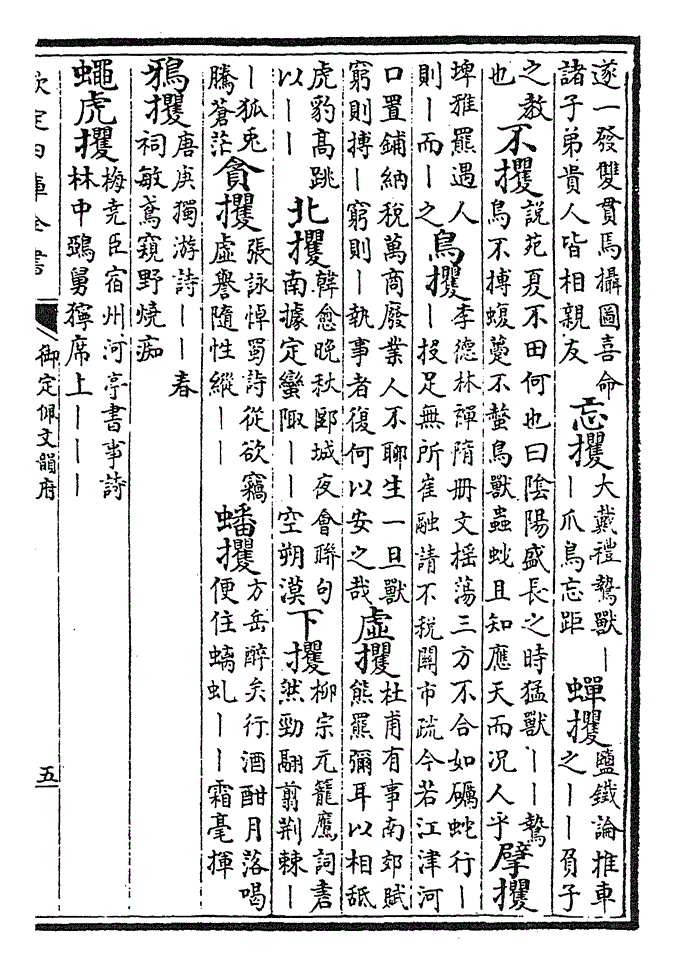 遂一發雙貫馬攝圖喜命諸子弟貴人皆相親友 忘攫 大戴禮鷙獸丨丨爪鳥忘距 蟬攫 鹽鐵論推車之丨丨負子
之教也 不攫 說苑夏不田何也曰陰陽盛長之時猛獸丨丨鷙鳥不搏蝮蠆不螫鳥獸蟲蛇且知應天而況人乎 擘攫
埤雅羆遇人則丨而丨之 鳥攫 李德林禪隋册文搖蕩三方不合如礪蛇行丨丨投足無所崔融請不稅關市疏今若江津河
口置鋪納稅萬商廢業人不聊生一旦獸窮則搏丨窮則丨執事者復何以安之哉 虛攫 杜甫有事南郊賦熊羆彌耳以相舐
虎豹髙跳以丨丨 北攫 韓愈晚秋郾城夜會聯句南據定蠻陬丨丨空朔漠 下攫 柳宗元籠鷹詞砉然勁翮翦荆棘丨
丨狐兎騰蒼茫 貪攫 張詠悼蜀詩從欲竊虛譽隨性縱丨丨 蟠攫 方岳醉矣行酒酣月落喝便住螭虬丨丨霜毫揮
鴉攫 唐庚獨游詩丨丨春祠敏鳶窺野燒痴
蠅虎攫 梅堯臣宿州河亭書事詩林中鵶舅獰席上丨丨丨
欽定四庫全書 御定佩文韻府 五